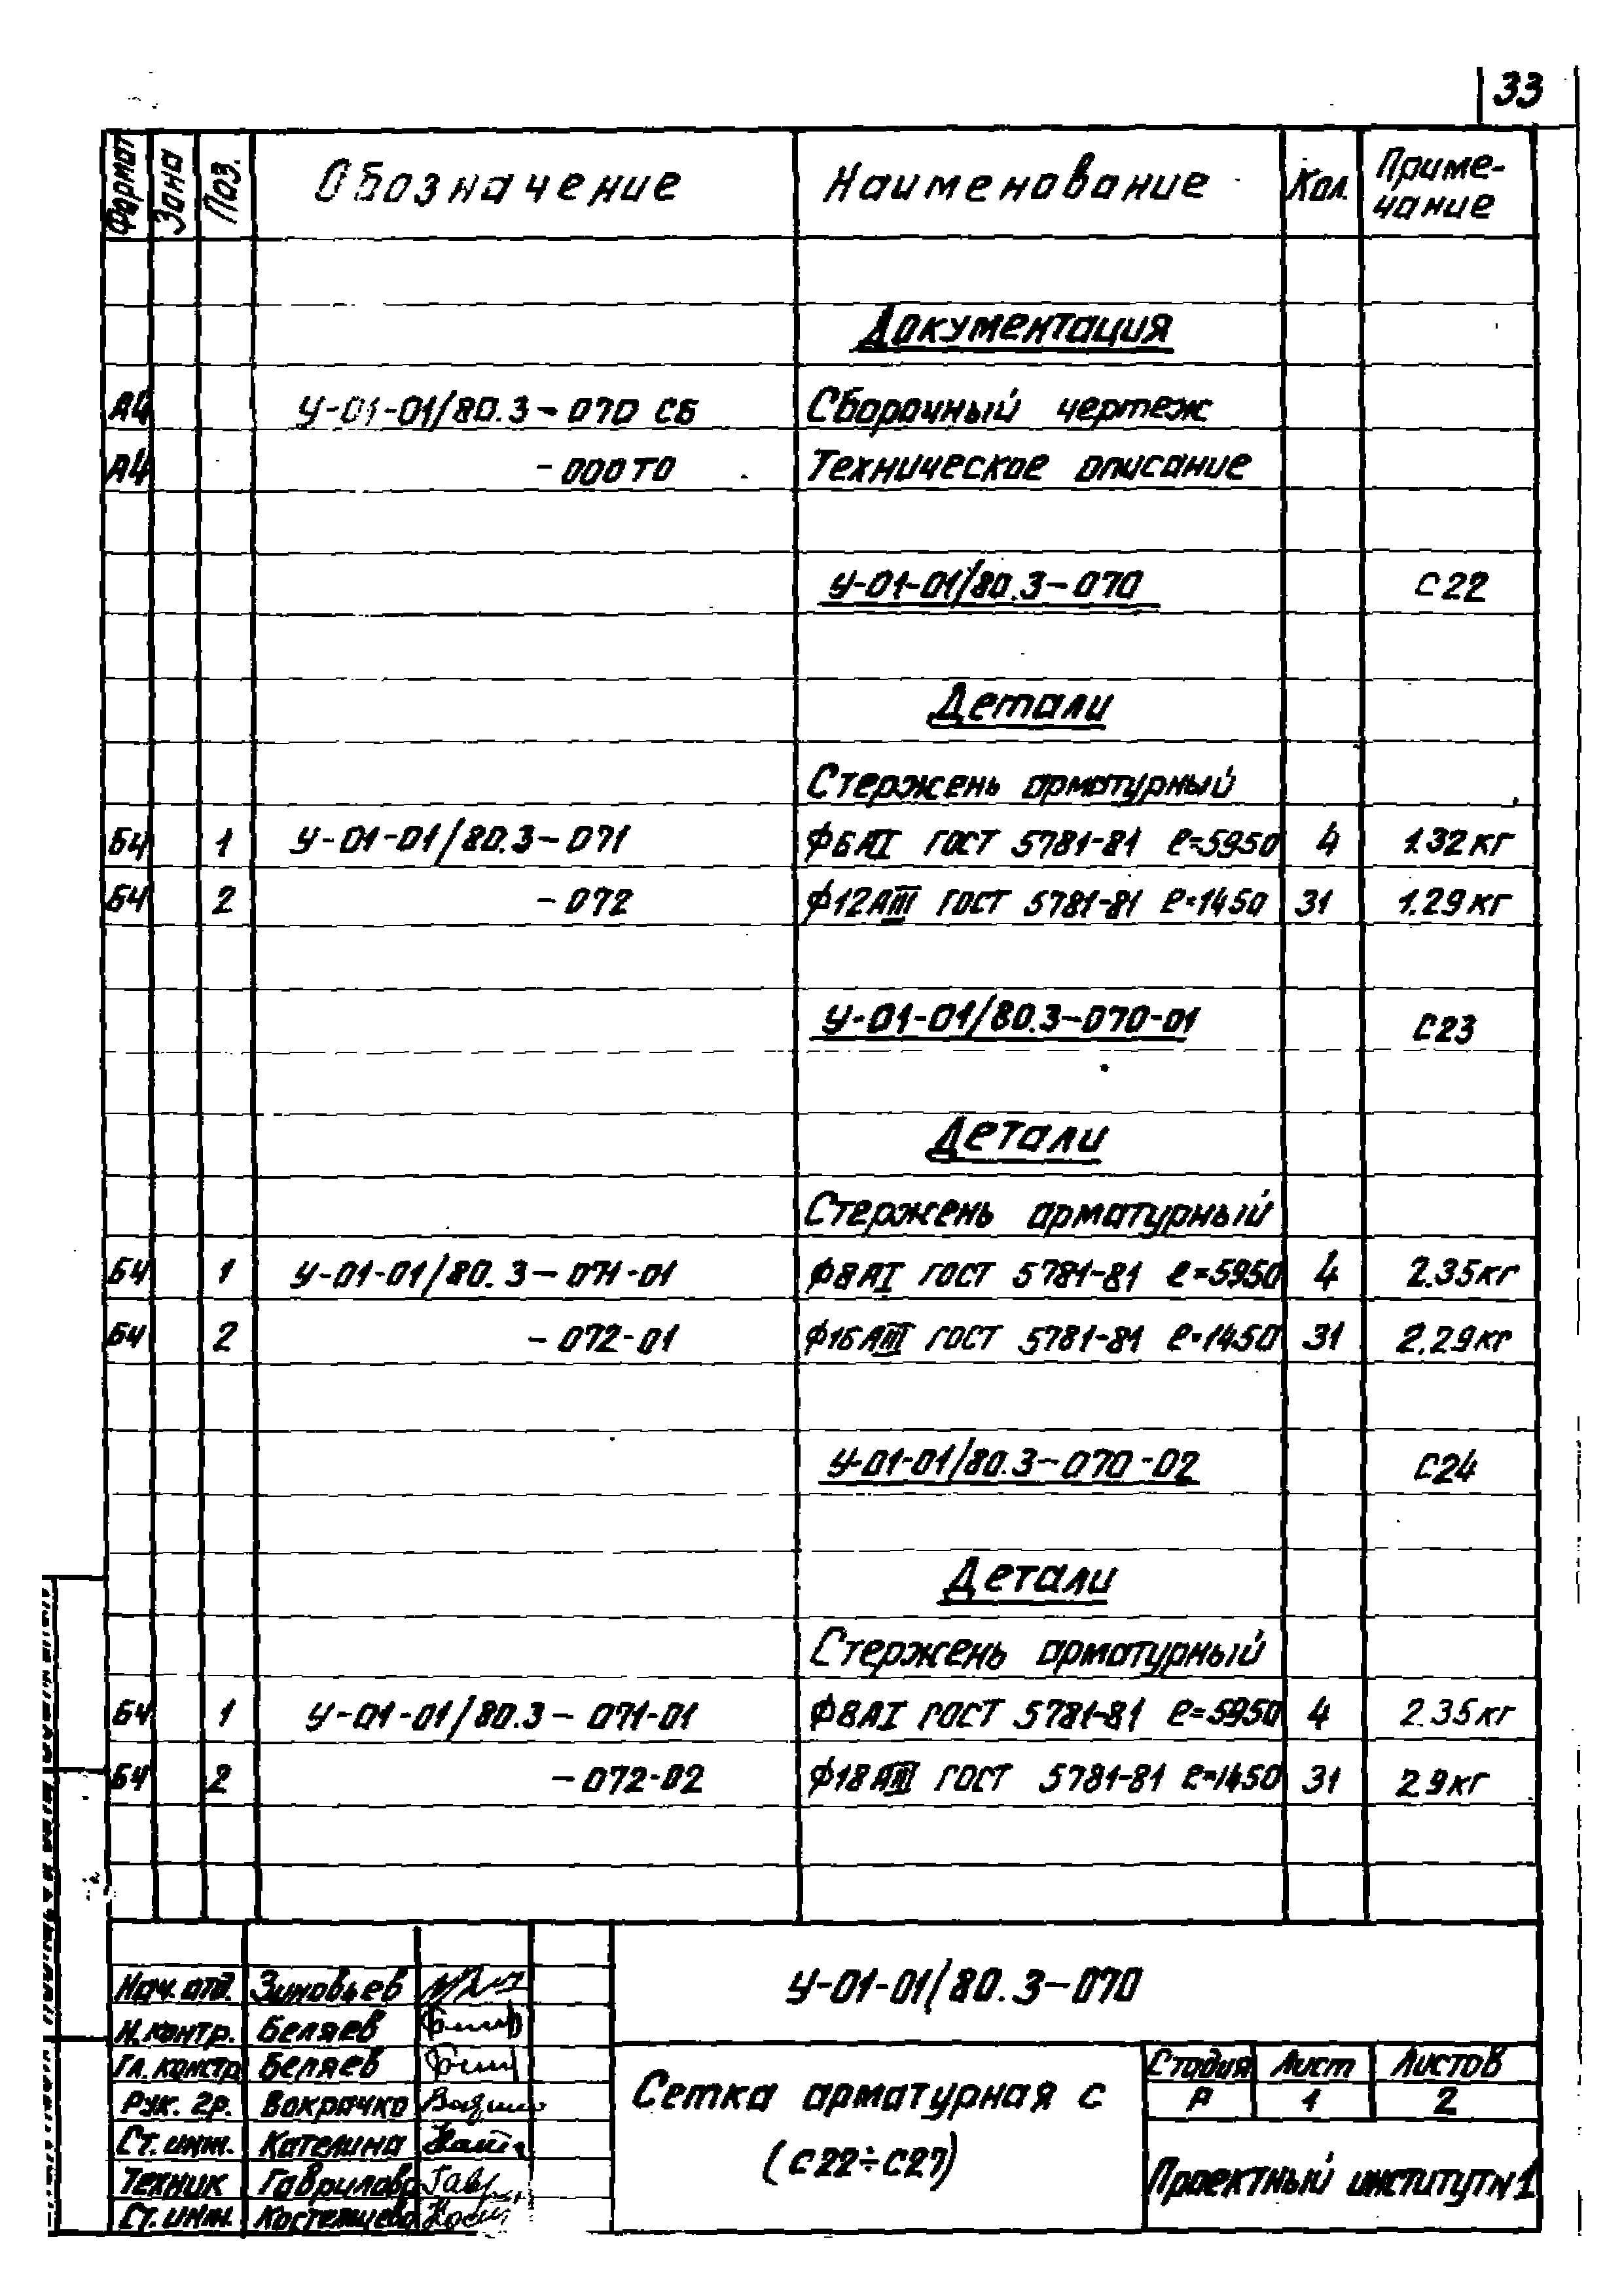 33
Формат Зона Поз. Обозначение Наименование Кол. Приме-
чание
Документация
А4 У-01-01/80.3-070 СБ Сборочный чертеж
А4 -000ТО Техническое описание
У-01-01/80.3-070 С22
Детали
Стержень арматурный
БЧ 1 У-01-01/80.3-071 Ф6АI ГОСТ 5781-81 ℓ=5950 4 1.32кг
БЧ 2 -072 Ф12АIII ГОСТ 5781-81 ℓ=1450 31 1.29кг
У-01-01/80.3-070-01 С23
Детали
Стержень арматурный
БЧ 1 У-01-01/80.3-071-01 Ф8АI ГОСТ 5781-81 ℓ=5950 4 2.35кг
БЧ 2 -072-01 Ф16АIII ГОСТ 5781-81 ℓ=1450 31 2.29кг
У-01-01/80.3-070-02 С24
Детали
Стержень арматурный
БЧ 1 У-01-01/80.3-071-01 Ф8АI ГОСТ 5781-81 ℓ=5950 4 2.35кг
БЧ 2 -072-02 Ф18АIII ГОСТ 5781-81 ℓ=1450 31 2.9кг
Нач. отд. Зиновьев
Н. контр. Беляев
Гл. констр Беляев
Рук. гр. Вакрачко
Ст. инж. Кателина
Техник Гаврилова
Ст. инж.
У-01-01/80.3-070
Сетка арматурная С
(С22÷С27)
Стадия Лист Листов
Р 1 2
Проектный институт №1